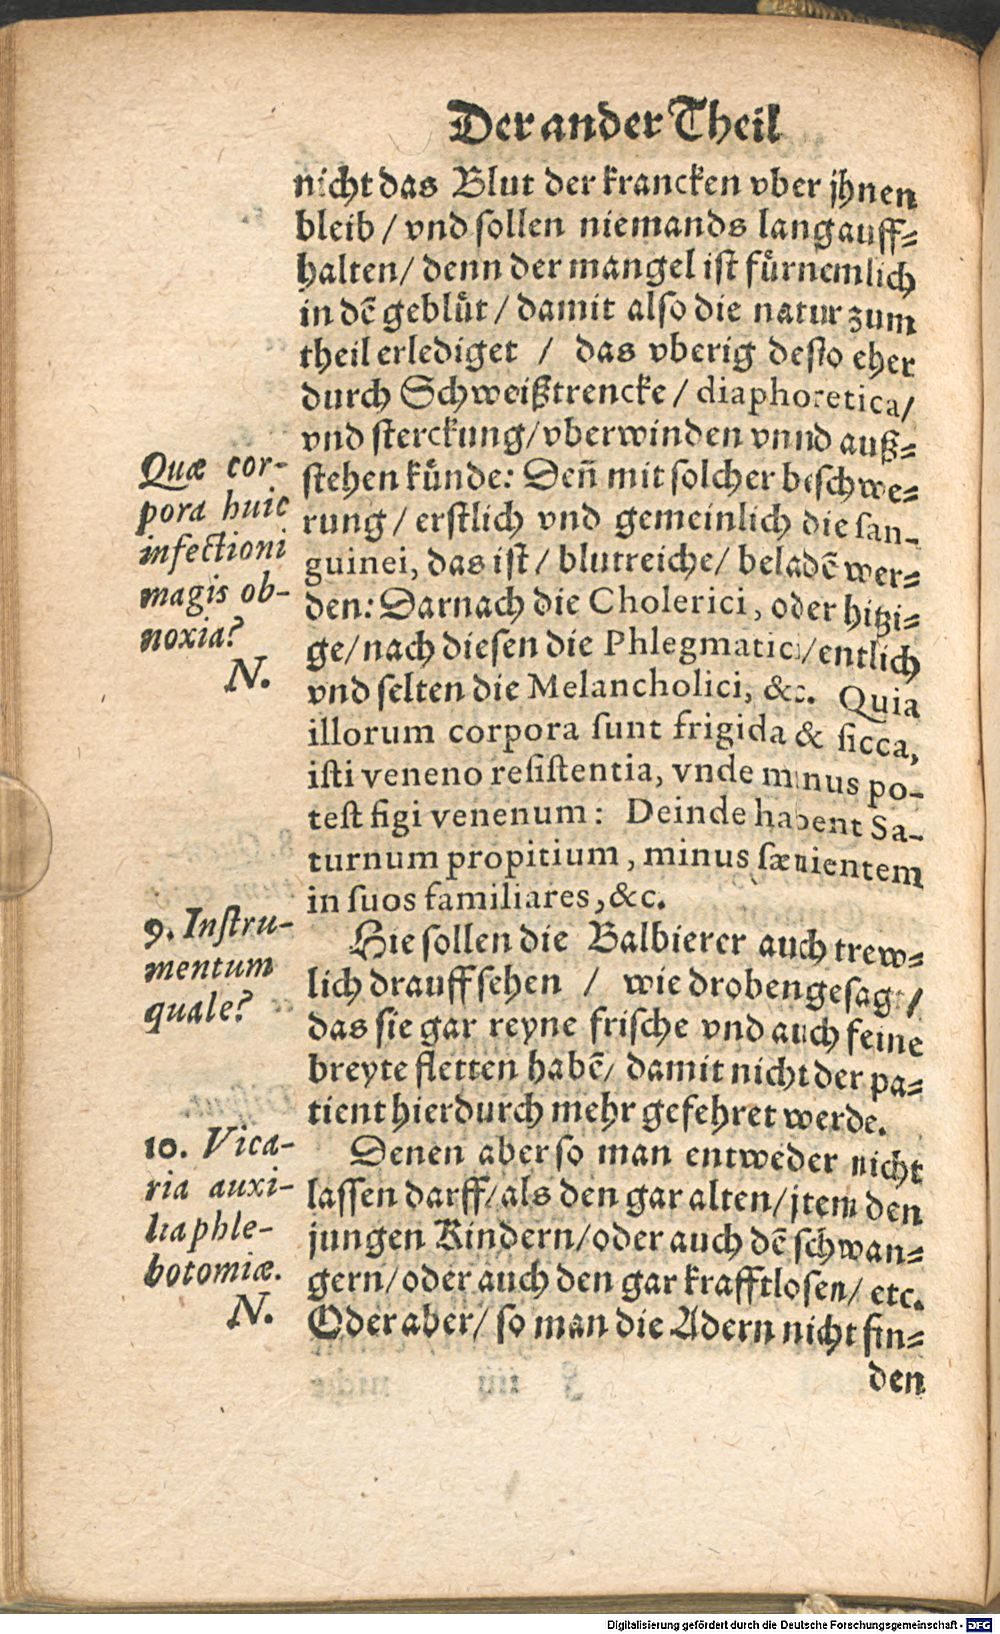 Der ander Theil
nicht das Blut der krancken vber jhnen
bleib / vnd sollen niemands lang auff⸗
halten / denn der mangel ist fürnemlich
in dẽ geblüt / damit also die natur zum
theil erlediget / das vberig desto eher
durch Schweißtrencke / diaphoretica /
vnd sterckung / vberwinden vnnd auß⸗
stehen künde: Deñ mit solcher beschwe⸗
rung / erstlich vnd gemeinlich die san-
guinei, das ist / blutreiche / beladẽ wer⸗
den: Darnach die Cholerici, oder hitzi⸗
ge / nach diesen die Phlegmatici / entlich
vnd selten die Melancholici, &c. Quia
illorum corpora sunt frigida & sicca,
isti veneno resistentia, vnde minus po-
test figi venenum: Deinde habent Sa-
turnum propitium, minus sæuientem
in suos familiares, &c.
Hie sollen die Balbierer auch trew⸗
lich drauff sehen / wie droben gesagt /
das sie gar reyne frische vnd auch feine
breyte fletten habẽ / damit nicht der pa⸗
tient hierdurch mehr gefehret werde.
Denen aber so man entweder nicht
lassen darff / als den gar alten / jtem den
jungen Kindern / oder auch dẽ schwan⸗
gern / oder auch den gar krafftlosen / etc.
Oder aber / so man die Adern nicht fin⸗
den
Quæ cor-
pora huic
infectioni
magis ob-
noxia?
N.
9. Instru-
mentum
quale?
10. Vica-
ria auxi-
lia phle-
botomiæ.
N.
Digitalisierung gefördert durch die Deutsche Forschungsgemeinschaft - DFG